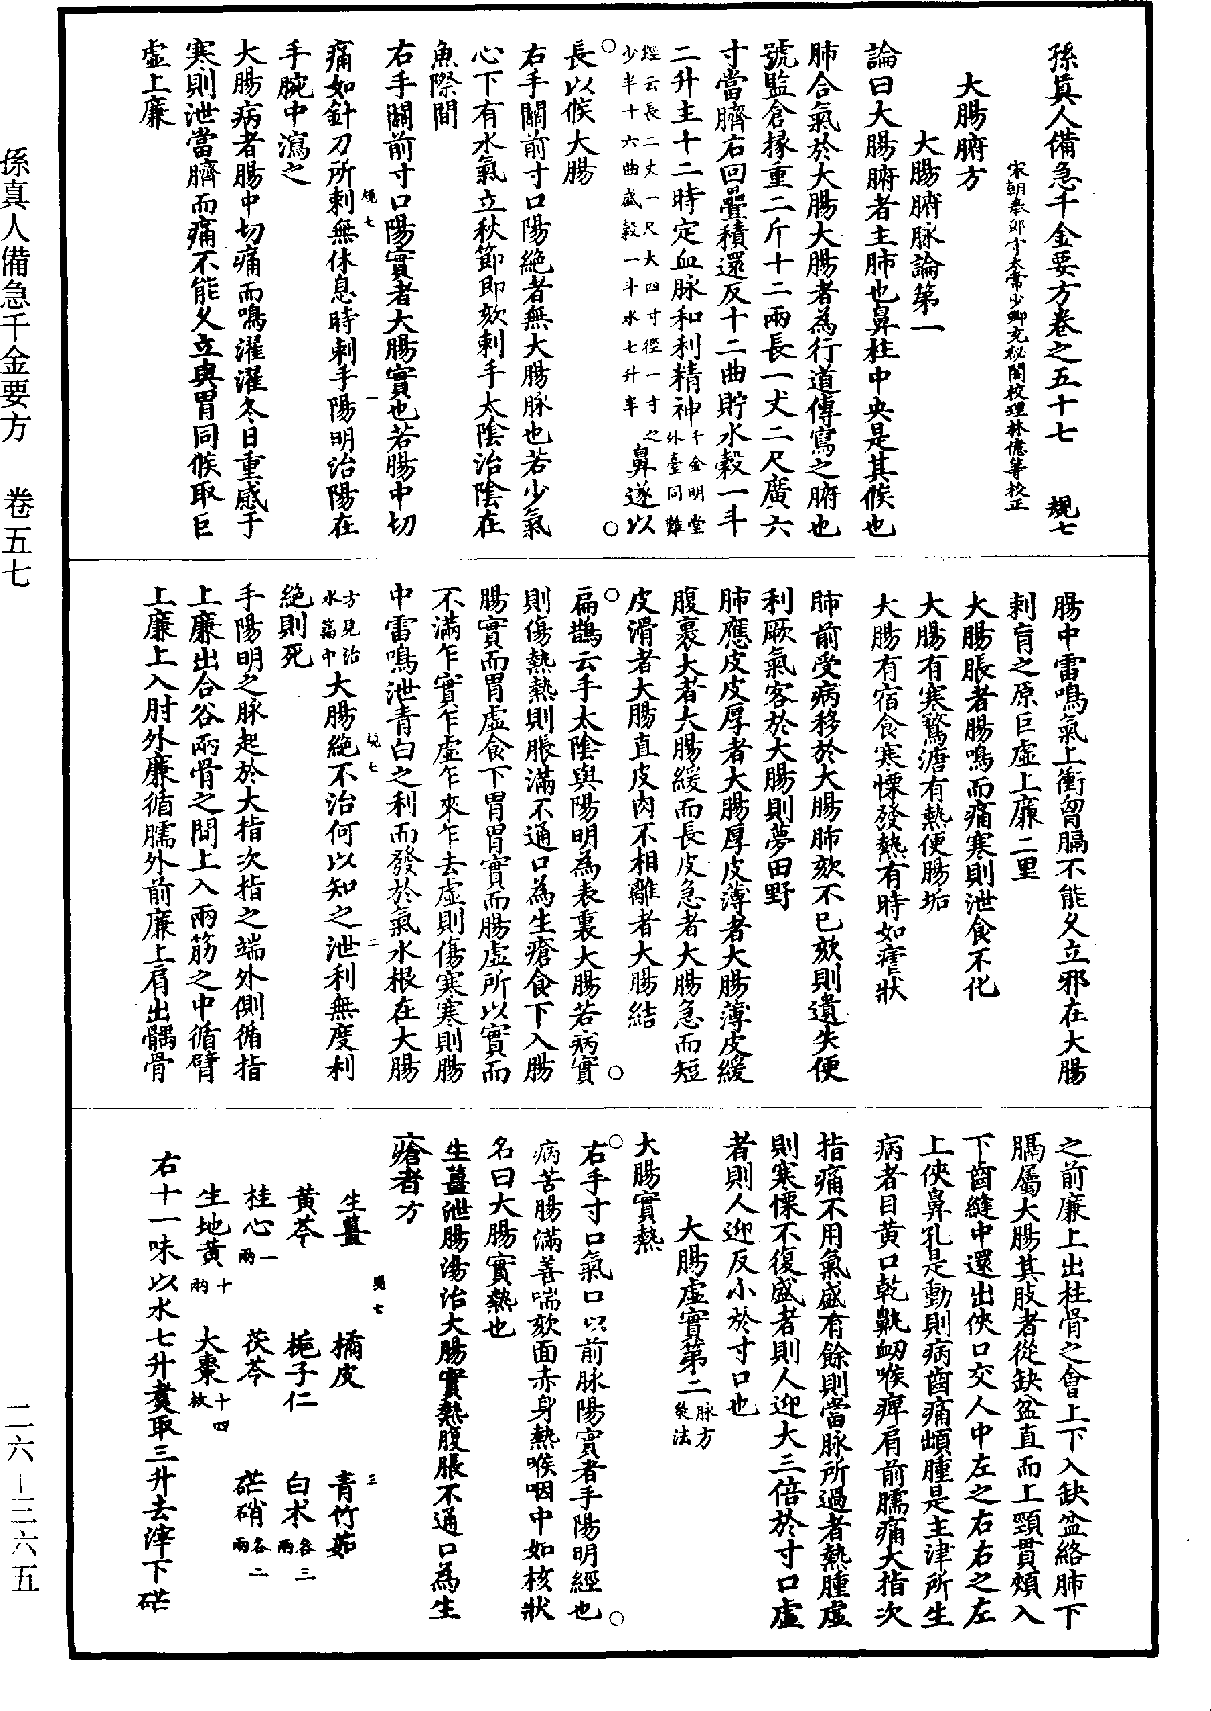 孫真人備急千金要方卷之五十七 規七
宋朝奉郎守太常少卿充秘閣校理林億等校正
大腸腑方
大腸腑脉論第一
論曰大腸腑者主肺也鼻柱中央是其候也
肺合氣於大腸大腸者為行道傳瀉之腑也
號監倉掾重二斤十二兩長一丈二尺廣六
寸當臍右回疊積還反十二曲貯水穀一斗
二升主十二時定血脉和利精神千金明堂外臺同難
經云長二丈一尺大四寸徑一寸之少半十六曲盛穀一斗水七升半鼻遂以
長以候大腸
右手關前寸口陽絶者無大腸脉也若少氣
心下有水氣立秋節即欬刺手太陰治陰在
魚際間
右手關前寸口陽實者大腸實也若腸中切
規七 一
痛如針刀所刺無休息時刺手陽明治陽在
手腕中瀉之
大腸病者腸中切痛而鳴濯濯冬日重感于
寒則泄當臍而痛不能久立與胃同候取巨
虛上廉
腸中雷鳴氣上衝胷膈不能久立邪在大腸
刺肓之原巨虛上廉二里
大腸脹者腸鳴而痛寒則泄食不化
大腸有寒鶩溏有熱便腸垢
大腸有宿食寒慄發熱有時如瘧狀
肺前受病移於大腸肺欬不已欬則遺失便
利厥氣客於大腸則夢田野
肺應皮皮厚者大腸厚皮薄者大腸薄皮緩
腹裹大者大腸緩而長皮急者大腸急而短
皮滑者大腸直皮肉不相離者大腸結
扁鵲云手太陰與陽明為表裏大腸若病實
則傷熱熱則脹滿不通口為生瘡食下入腸
腸實而胃虛食下胃胃實而腸虛所以實而
不滿乍實乍虛乍來乍去虛則傷寒寒則腸
中雷鳴泄青白之利而發於氣水根在大腸
規七 二
方見治水篇中大腸絶不治何以知之泄利無度利
絶則死
手陽明之脉起於大指次指之端外側循指
上廉出合谷兩骨之間上入兩筋之中循臂
上廉上入肘外廉循臑外前廉上肩出髃骨
之前廉上出柱骨之會上下入缺盆絡肺下
膈屬大腸其肢者從缺盆直而上頸貫頰入
下齒縫中還出俠口交人中左之右右之左
上俠鼻孔是動則病齒痛䪼腫是主津所生
病者目黃口乾鼽衂喉痺肩前臑痛大指次
指痛不用氣盛有餘則當脉所過者熱腫虛
則寒慄不復盛者則人迎大三倍於寸口虛
者則人迎反小於寸口也
大腸虛實第二脉方
大腸實熱
右手寸口氣口以前脉陽實者手陽明經也
病苦腸滿善喘欬面赤身熱喉咽中如核狀
名曰大腸實熱也
生薑泄腸湯治大腸實熱腹脹不通口為生
瘡者方
規七 三
生薑 橘皮 青竹茹
黃芩 梔子仁 白朮各三兩
桂心一兩 茯苓 芒硝各二兩
生地黃十兩 大棗十四枚
右十一味以水七升煑取三升去滓下芒
孫真人備急千金要方 卷五七 二六－三六五